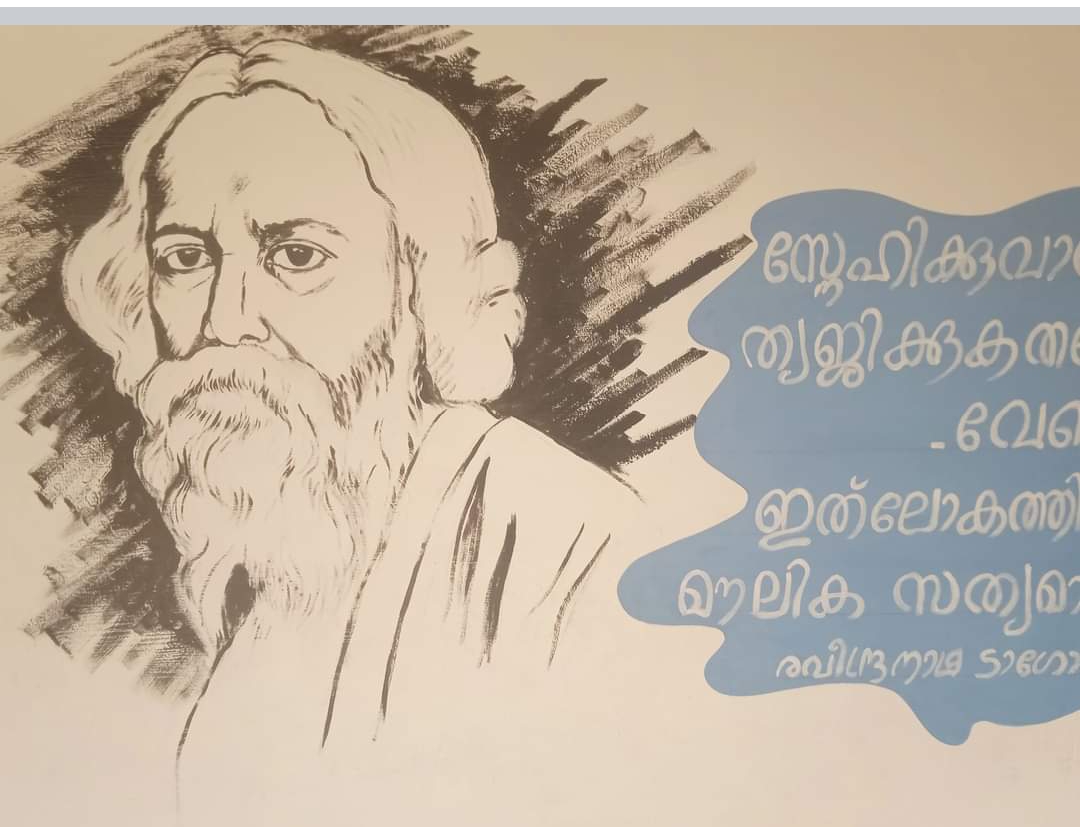 സ്നേഹിക്കുവാ
ത്യജിക്കുക
വേ
ഇത്ലോകത്തി
മൗലിക സത്യമാ
രവീന്ദ്രനാഥ ടാഗോ